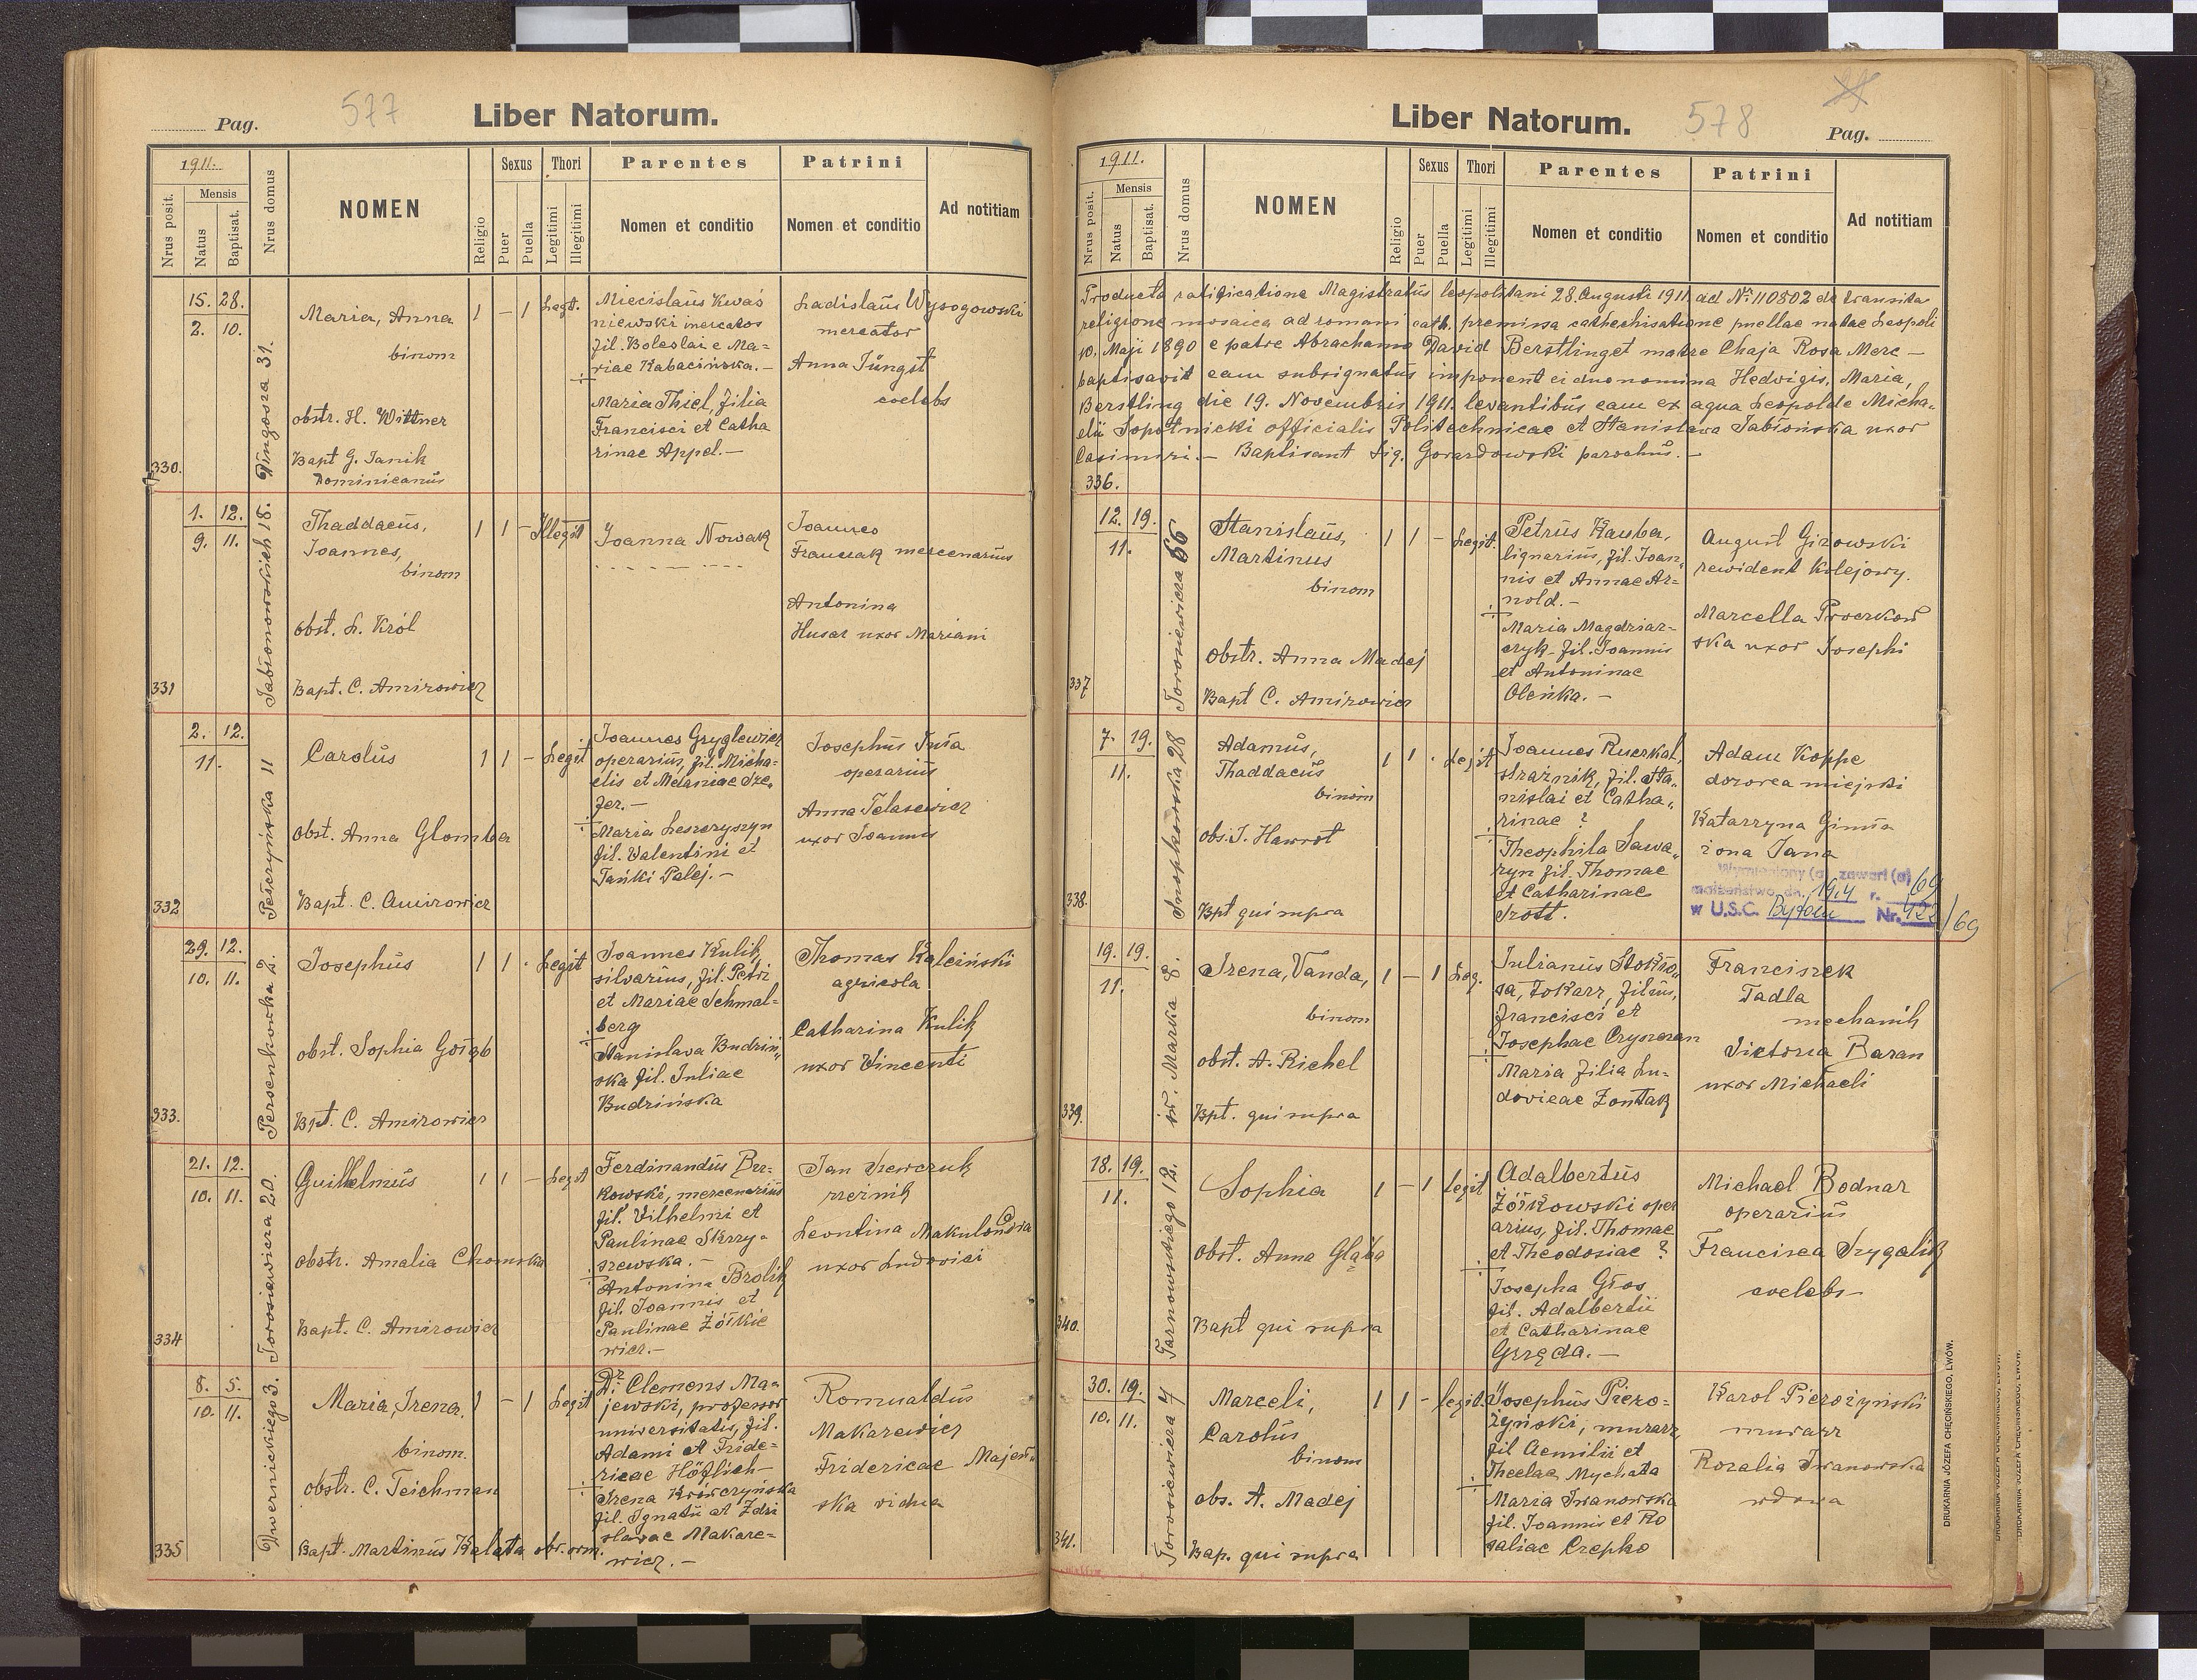 Pag.
577
Liber Natorum.
1911.
Nrus posit.
Mensis
Natus
Baptisat.
Nrus domus
NOMEN
Religio
Sexus
Puer
Puella
Thori
Legitimi
Illegitimi
Parentes
Nomen et conditio
Patrini
Nomen et conditio
Ad notitiam
330.
15. 28.
2. 10.
31.
Maria, Anna
binom
obstr. H. Wittner
Bapt G. Janik
Dominicanus
1 – 1 Legt.
Miecislaus Kwaś
niewski mercator
fil. Boleslai e Ma=
riae Kabacińska.–
Maria Thiel, filia
Francisci et Catha
rinae Appel.–
Ladislaus Wysogowski
mercator
Anna Jüngst
coelebs
331
1. 12.
9. 11.
Jabłonowskich 18.
Thaddaeus,
Joannes,
binom
obst. L. Król
Bapt. C. Amirowicz
1 1 – Illegit
Joanna Nowak
Joannes
Franczak mercenarius
Antonina
Husar uxor Mariani
332
2. 12.
11.
Pełczyńska 11
Carolus
obst. Anna Glomba
Bapt. C. Amirowicz
1 1 – Legit
Joannes Gryglewicz
operarius, fil. Micha=
elis et Melaniae Sze,
fer.–
Maria Leszczyszyn
fil. Valentini et
Tańki Palej.–
Josephus
operarius
Anna Telasewicz
uxor Joannis
333.
29. 12.
10. 11.
Persenkowka 2.
Josephus
obst. Sophia Gołąb
Bpt. C. Amirowicz
1 1 · Legit
Joannes Kulik,
silvarius, fil. Petri
et Mariae Schmal-
berg
Stanislava Budziń,
ska fil. Juliae
Budzińska
Thomas Kaleiński
agricola
Catharina Kulik
uxor Vincenti
334
21. 12.
10. 11.
Torosiewicza 20.
Guilhelmus
obstr. Amalia Chomska
Bapt. C. Amirowicz
1 1 – Legit
Ferdinandus Brz=
kowski, mercenarius
fil. Vilhelmi et
Paulinae Skrzy=
szewska.–
Antonina Brolik
fil. Joannis et
Paulinae Żółkie
wicz.–
Jan Szewczuk
rzeźnik
Leontina
uxor Ludovici
335
8. 5.
10. 11.
Dwernickiego 3.
Maria, Irena,
binom.
obstr. C. Teichman
Bapt. Martinus Kalata obr. orm.
1 – 1 Legit
Dr Clemens Ma=
jewski, professor
universitatis, fil.
Adami et Fride=
ricae Höflich–
Irena Krówczyńska
fil. Ignatii et Zdzi
slavae Makare=
wicz.–
Romualdus
Makarewicz
Fridericae Majew,
ska vidua
Liber Natorum.
578
Pag.
1911.
Nrus posit.
Mensis
Natus
Baptisat.
Nrus domus
NOMEN
Religio
Sexus
Puer
Puella
Thori
Legitimi
Illegitimi
Parentes
Nomen et conditio
Patrini
Nomen et conditio
Ad notitiam
Producta ratificatione Magistratus leopolitani 28. Augusti 1911 ad Nr. 110802 de transitu
religione mosaica ad romani cath. premissa cathechisatione puellae natae Leopoli
10. Maji 1890 e patre Abrachamo David Berstling et matre Chaja Rosa Merc –
baptisavit eam subsignatus imponent ei duo nomina Hedvigis, Maria,
Berstling die 19. Novembris 1911. levantibus eam ex aqua Leopolde Micha=
elii Sopotnicki officialis Politechnicae et Stanislava Jabłońska uxor
Casimiri.– Baptisant Sig. Gorazdowski parochus.–
336.
337
12. 19.
11.
Torosiewicza 66
Stanislaus,
Martinus
binom
obstr. Anna Madej
Bapt C. Amirowicz
1 1 – Legit.
Petrus Kauba,
lignarius, fil. Joan,
nis et Annae Ar=
nold.–
Maria Magdziar-
czyk- fil. Joannis
et Antoninae
Oleńka.–
August Gizowski
rewident kolejowy.
Marcella
ska uxor Josephi
338.
7. 19.
11.
Snopkowska 28
Adamus,
Thaddaeus
binom
obs. J. Hawrot
Bpt qui supra
1 1 · Legit
Joannes
strażnik, fil. Sta,
nislai et Catha,
rinae ?
Theophila Sawa,
ryn fil. Thomae
et Catharinae
Trott.
Adam Koppe
dozorca miejski
Katarzyna
żona Jana
Wymieniony (a) zawarł (a)
małżeństwo dn. 19.4 r. 69
w U.S.C. Bytom Nr. 422/69
339.
19. 19.
11.
św. Marka 8.
Irena, Vanda,
binom
obst. A. Richel
Bpt. qui supra
1 – 1 Leg.
Julianus Stokło,
sa, tokarz, filius,
Francisci et
Josephae
Maria filia Lu=
dovicae Zontak
Franciszek
Tadla
mechanik
Victoria Baran
uxor Michaeli
340.
18. 19.
11.
Tarnowskiego 12.
Sophia
obst. Anna Głąba
Bapt qui supra
1 – 1 legit
Adalbertus
Żółkowski oper
arius, fil. Thomae
et Theodosiae ?
Josepha Głos
fil. Adalbertii
et Catharinae
Gręda.–
Michael Bodnar
operarius
Francisca
coelebs
341.
30. 19.
10. 11.
Torosiewicza 4
Marceli,
Carolus
binom
obs. A. Madej
Bap. qui supra
1 1 – legit.
Josephus Piero=
żyński, murarz,
fil Aemilii et
Theclae Mychata
Maria Iwanowska
fil. Joannis et Ro
saliae Czepko
Karol Pierożynski
murarz
Rozalia Iwanowska
wdowa
DRUKARNIA JÓZEFA CHĘCIŃSKIEGO, LWÓW.